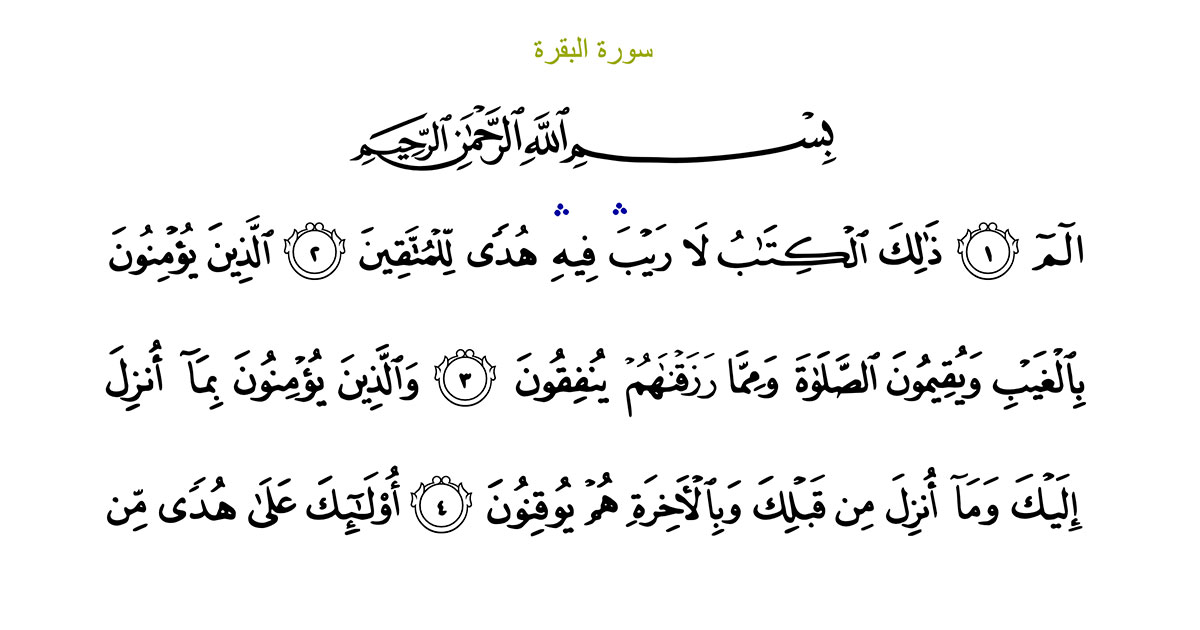 سورة البقرة
بِسْمِ ٱللَّهِ ٱلرَّحْمَٰنِ ٱلرَّحِيمِ
الٓمٓ ١ ذَٰلِكَ ٱلْكِتَٰبُ لَا رَيْبَ ۛ فِيهِ ۛ هُدًى لِّلْمُتَّقِينَ ٢ ٱلَّذِينَ يُؤْمِنُونَ
بِٱلْغَيْبِ وَيُقِيمُونَ ٱلصَّلَوٰةَ وَمِمَّا رَزَقْنَٰهُمْ يُنْفِقُونَ ٣ وَٱلَّذِينَ يُؤْمِنُونَ بِمَآ أُنزِلَ
إِلَيْكَ وَمَآ أُنزِلَ مِن قَبْلِكَ وَبِٱلْأَخِرَةِ هُمْ يُوقِنُونَ ٤ أُوْلَٰٓئِكَ عَلَىٰ هُدًى مِّن